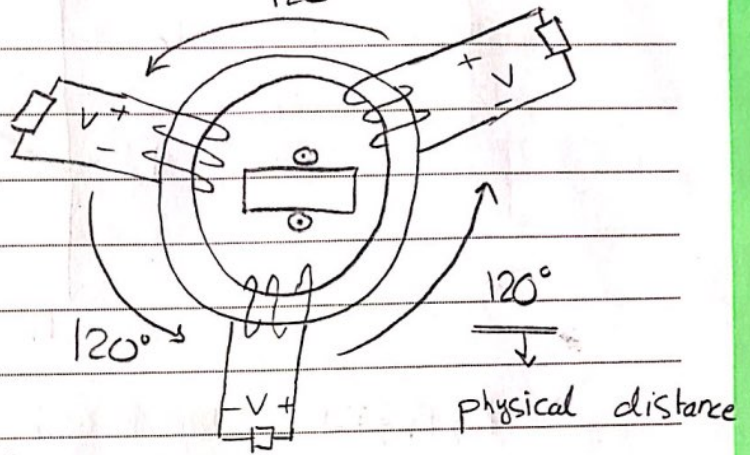 +
V
-
V +
-
120°
120°
- V +
physical distance